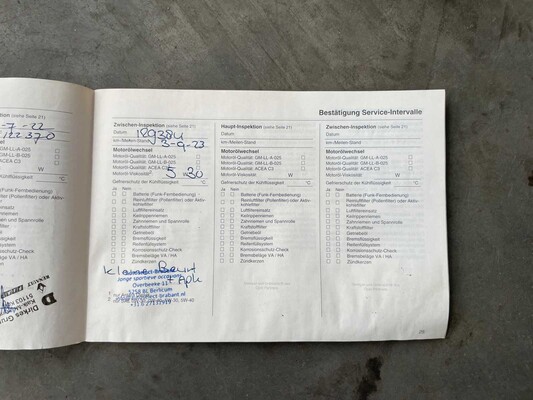 Bestätigung Service-Intervalle
ktion (siehe Seite 21)
-7-22
122 370
GM-LL-A-025
GM-LL-B-025
ACEA C3
W
Kühlflüssigkeit
°C
(Funk-Fernbedienung)
(Pollenfilter) oder Aktiv-
satz
en
und Spannrolle
ung
system
Check
VA / HA
Zwischen-Inspektion (siehe Seite 21)
Datum 189384
km-/Meilen-Stand 3-9-23
Motorölwechsel
Motoröl-Qualität: GM-LL-A-025
Motoröl-Qualität: GM-LL-B-025
Motoröl-Qualität: ACEA C3
Motoröl-Viskosität: 5 W 30
Gefrierschutz der Kühlflüssigkeit °C
Ja Nein
Batterie (Funk-Fernbedienung)
Reinluftfilter (Pollenfilter) oder Aktiv-
kohlefilter
Luftfiltereinsatz
Keilrippenriemen
Zahnriemen und Spannrolle
Kraftstofffilter
Getriebeöl
Bremsflüssigkeit
Reifenfüllsystem
Korrosionsschutz-Check
Bremsbeläge VA / HA
Zündkerzen
Kleine Beurt
+ Apk
jonge sportieve occasions
Overbeeke 11
5258 BL Berlicum
Haupt-Inspektion (siehe Seite 21)
Datum
km-/Meilen-Stand
Motorölwechsel
Motoröl-Qualität: GM-LL-A-025
Motoröl-Qualität: GM-LL-B-025
Motoröl-Qualität: ACEA C3
Motoröl-Viskosität: W
Gefrierschutz der Kühlflüssigkeit °C
Ja Nein
Batterie (Funk-Fernbedienung)
Reinluftfilter (Pollenfilter) oder Aktiv-
kohlefilter
Luftfiltereinsatz
Keilrippenriemen
Zahnriemen und Spannrolle
Kraftstofffilter
Getriebeöl
Bremsflüssigkeit
Reifenfüllsystem
Korrosionsschutz-Check
Bremsbeläge VA / HA
Zündkerzen
Zwischen-Inspektion (siehe Seite 21)
Datum
km-/Meilen-Stand
Motorölwechsel
Motoröl-Qualität: GM-LL-A-025
Motoröl-Qualität: GM-LL-B-025
Motoröl-Qualität: ACEA C3
Motoröl-Viskosität: W
Gefrierschutz der Kühlflüssigkeit °C
Ja Nein
Batterie (Funk-Fernbedienung)
Reinluftfilter (Pollenfilter) oder Aktiv-
kohlefilter
Luftfiltereinsatz
Keilrippenriemen
Zahnriemen und Spannrolle
Kraftstofffilter
Getriebeöl
Bremsflüssigkeit
Reifenfüllsystem
Korrosionsschutz-Check
Bremsbeläge VA / HA
Zündkerzen